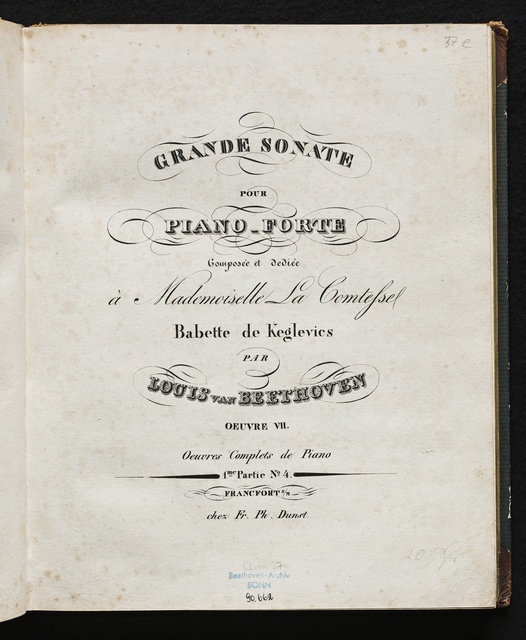 37 e
GRANDE SONATE
POUR
PIANO-FORTE
Composée et dediée
à Mademoiselle La Comtesse
Babette de Keglevics
PAR
LOUIS VAN BEETHOVEN
OEUVRE VII.
Oeuvres Complets de Piano
1me Partie No 4.
FRANCFORT S/M
chez Fr. Ph. Dunst.
Beethoven-Archiv
BONN
90,662